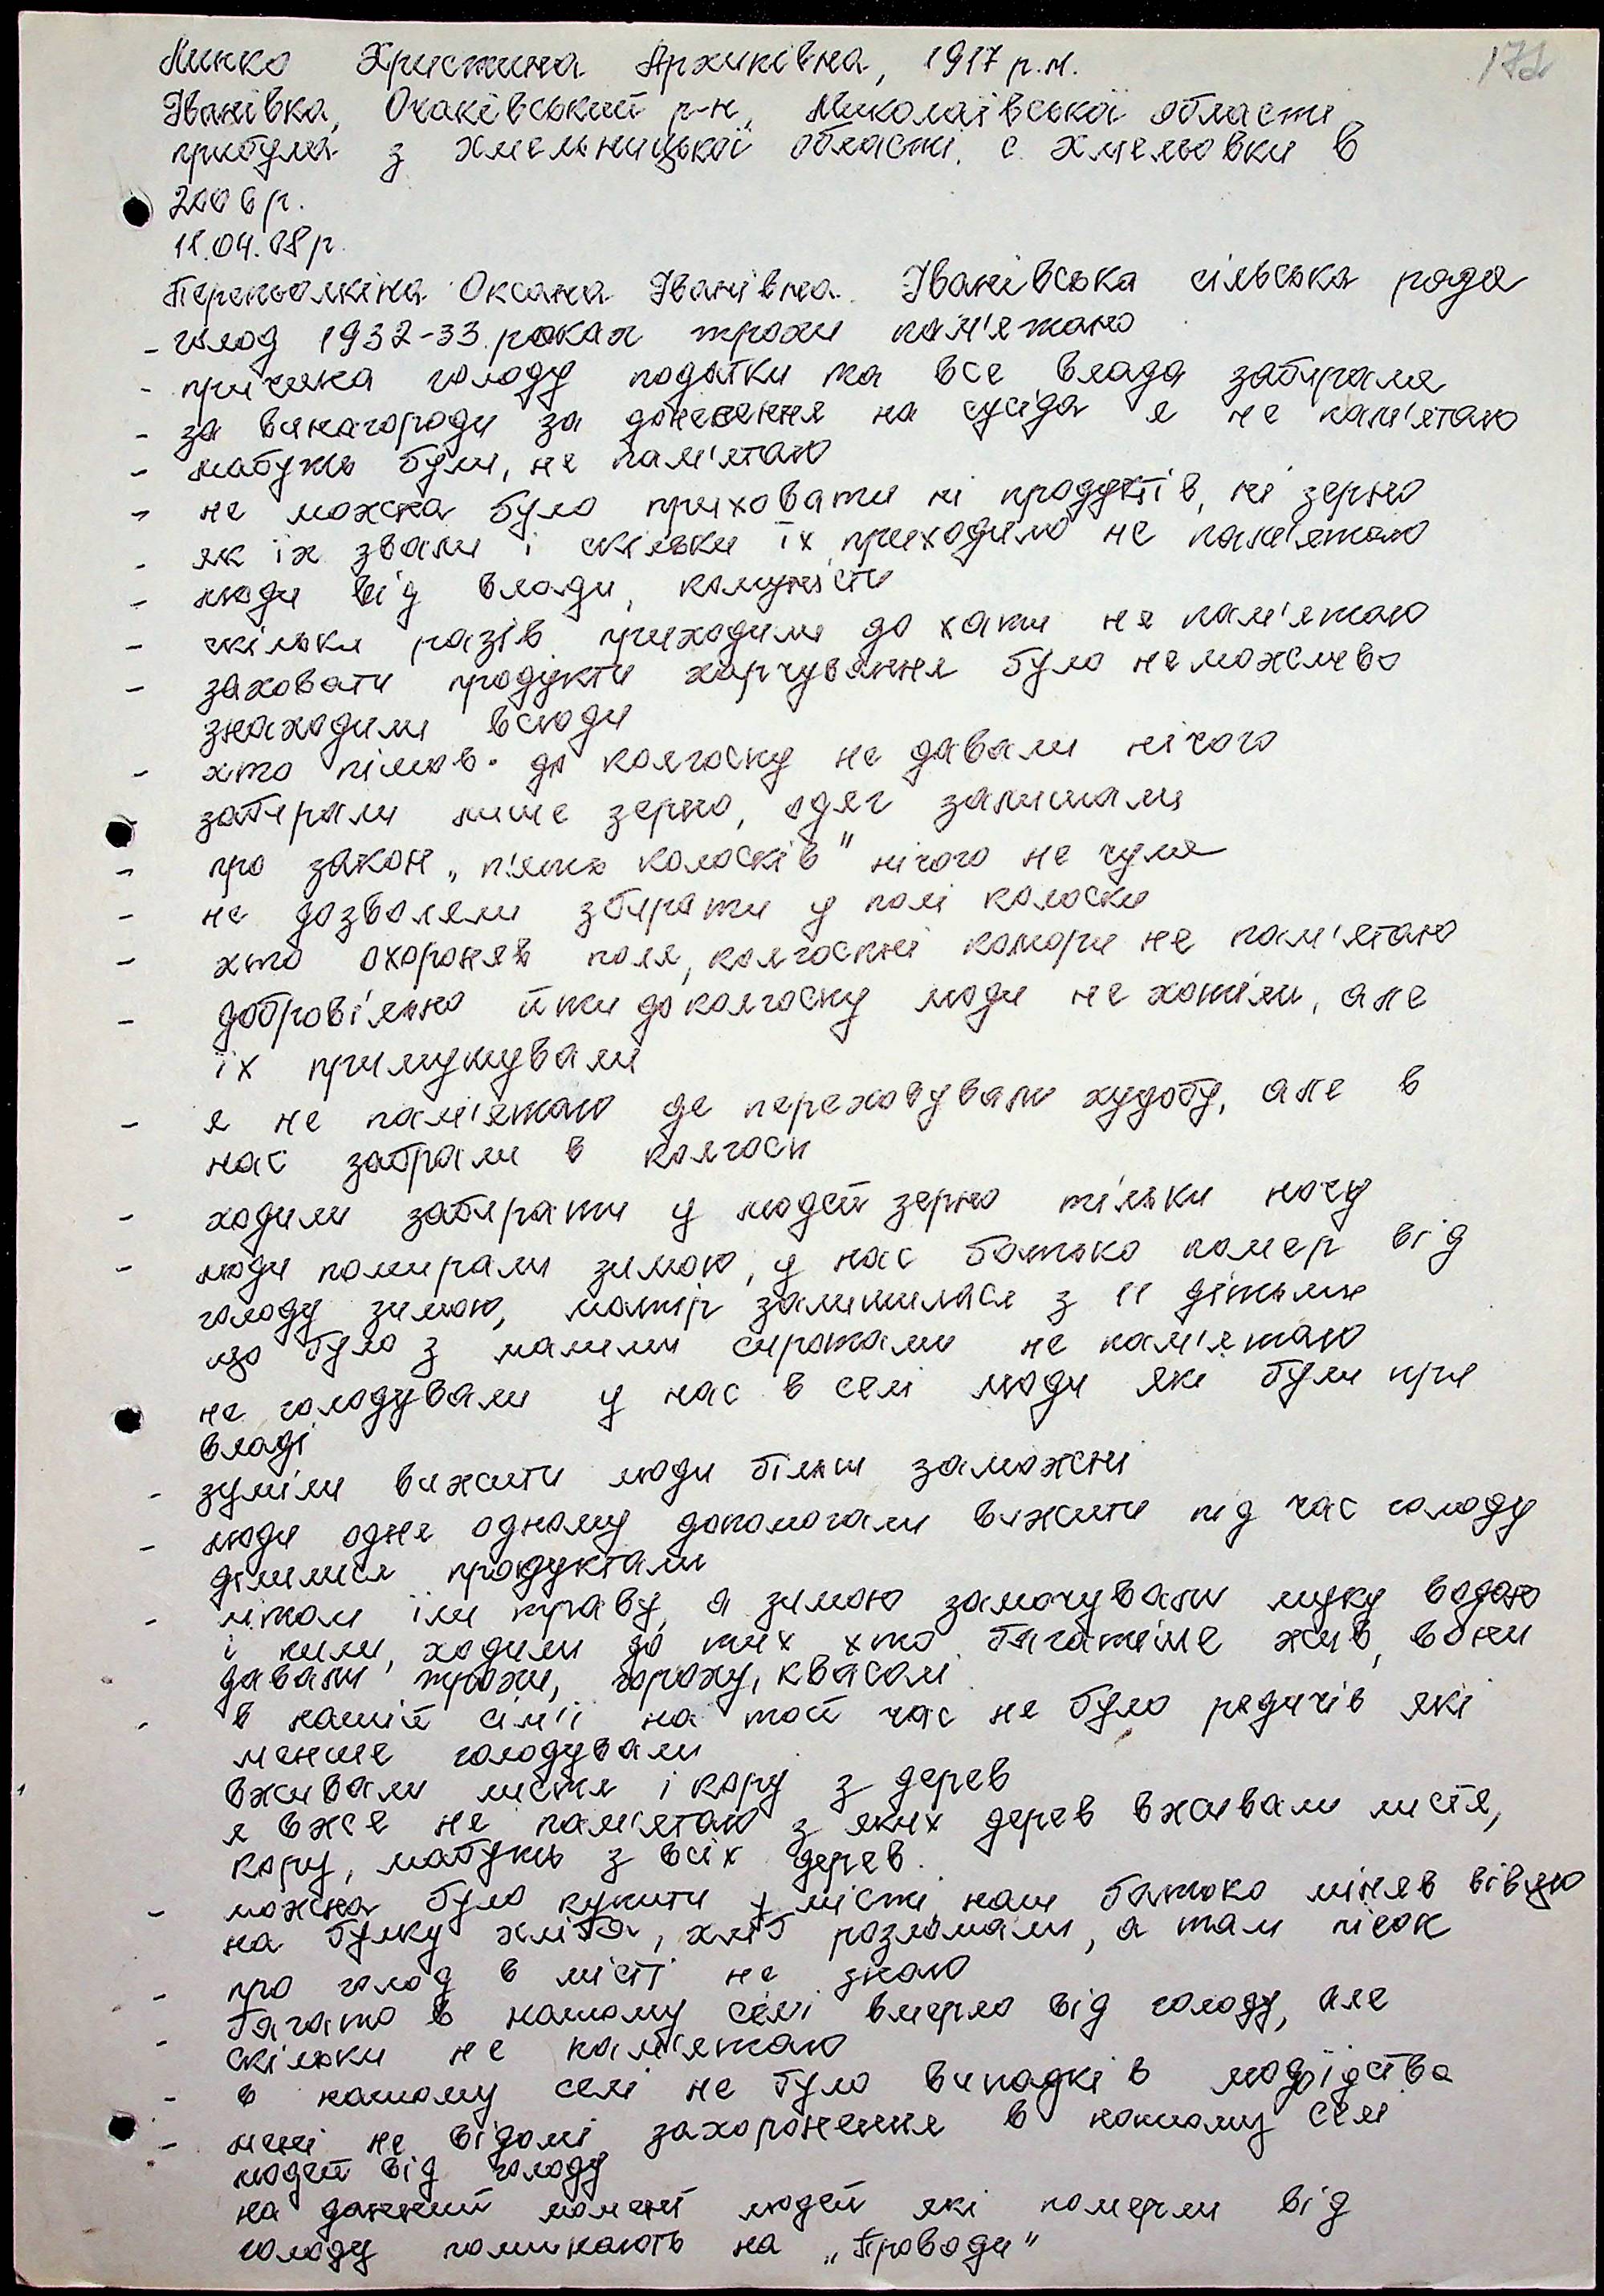 172
Линко Христина Архипівна, 1917 р.н.
Іванівка, Очаківський р-н, Миколаївської області
прибула з Хмельницької області. с. Хмельовки в
2006 р.
11.04.08 р.
Перепьолкіна Оксана Іванівна. Іванівська сільська рада
- голод 1932-33 роках трохи пам'ятаю
- причина голоду податки та все влада забирала
- за винагороди за донесення на сусіда я не пам'ятаю
- мабуть були, не пам'ятаю
- не можна було приховати ні продуктів, ні зерно
- як їх звали і скільки їх приходило не пам'ятаю
- люди від влади, комуністи
- скільки разів приходили до хати не пам'ятаю
- заховати продукти харчування було неможливо
знаходили всюди
- хто пішов до колгоспу не давали нічого
- забирали лише зерно, одяг залишали
- про закон „п'ять колосків" нічого не чула
- не дозволяли збирати у полі колоски
- хто охороняв поля, колгоспні комори не пам'ятаю
- добровільно йти до колгоспу люди не хотіли, але
їх примушували
- я не пам'ятаю де переховували худобу, але в
нас забрали в колгосп
- ходили забирати у людей зерно тільки ночу
- люди помирали зимою, у нас батько помер від
голоду зимою, матір залишилася з 11 дітьми
що було з малими сиротами не пам'ятаю
не голодували у нас в селі люди які були при
владі
- зуміли вижити люди більш заможні
- люди одне одному допомагали вижити під час голоду
ділилися продуктами
- літом їли траву, а зимою замочували муку водою
і пили, ходили до тих хто багатіше жив, вони
давали трохи, гороху, квасолі
- в нашій сім'ї на той час не було родичів які
менше голодували
вживали листя і кору з дерев
я вже не пам'ятаю з яких дерев вживали листя,
кору, мабуть з всіх дерев.
- можна було купити у місті, наш батько міняв вівцю
на булку хліба, хліб розломали, а там пісок
- про голод в місті не знаю
- багато в нашому селі вмерло від голоду, але
скільки не пам'ятаю
- в нашому селі не було випадків людоїдства
- мені не відомі захоронення в нашому селі
людей від голоду
на данний момент людей які померли від
голоду поминають на „Проводи"